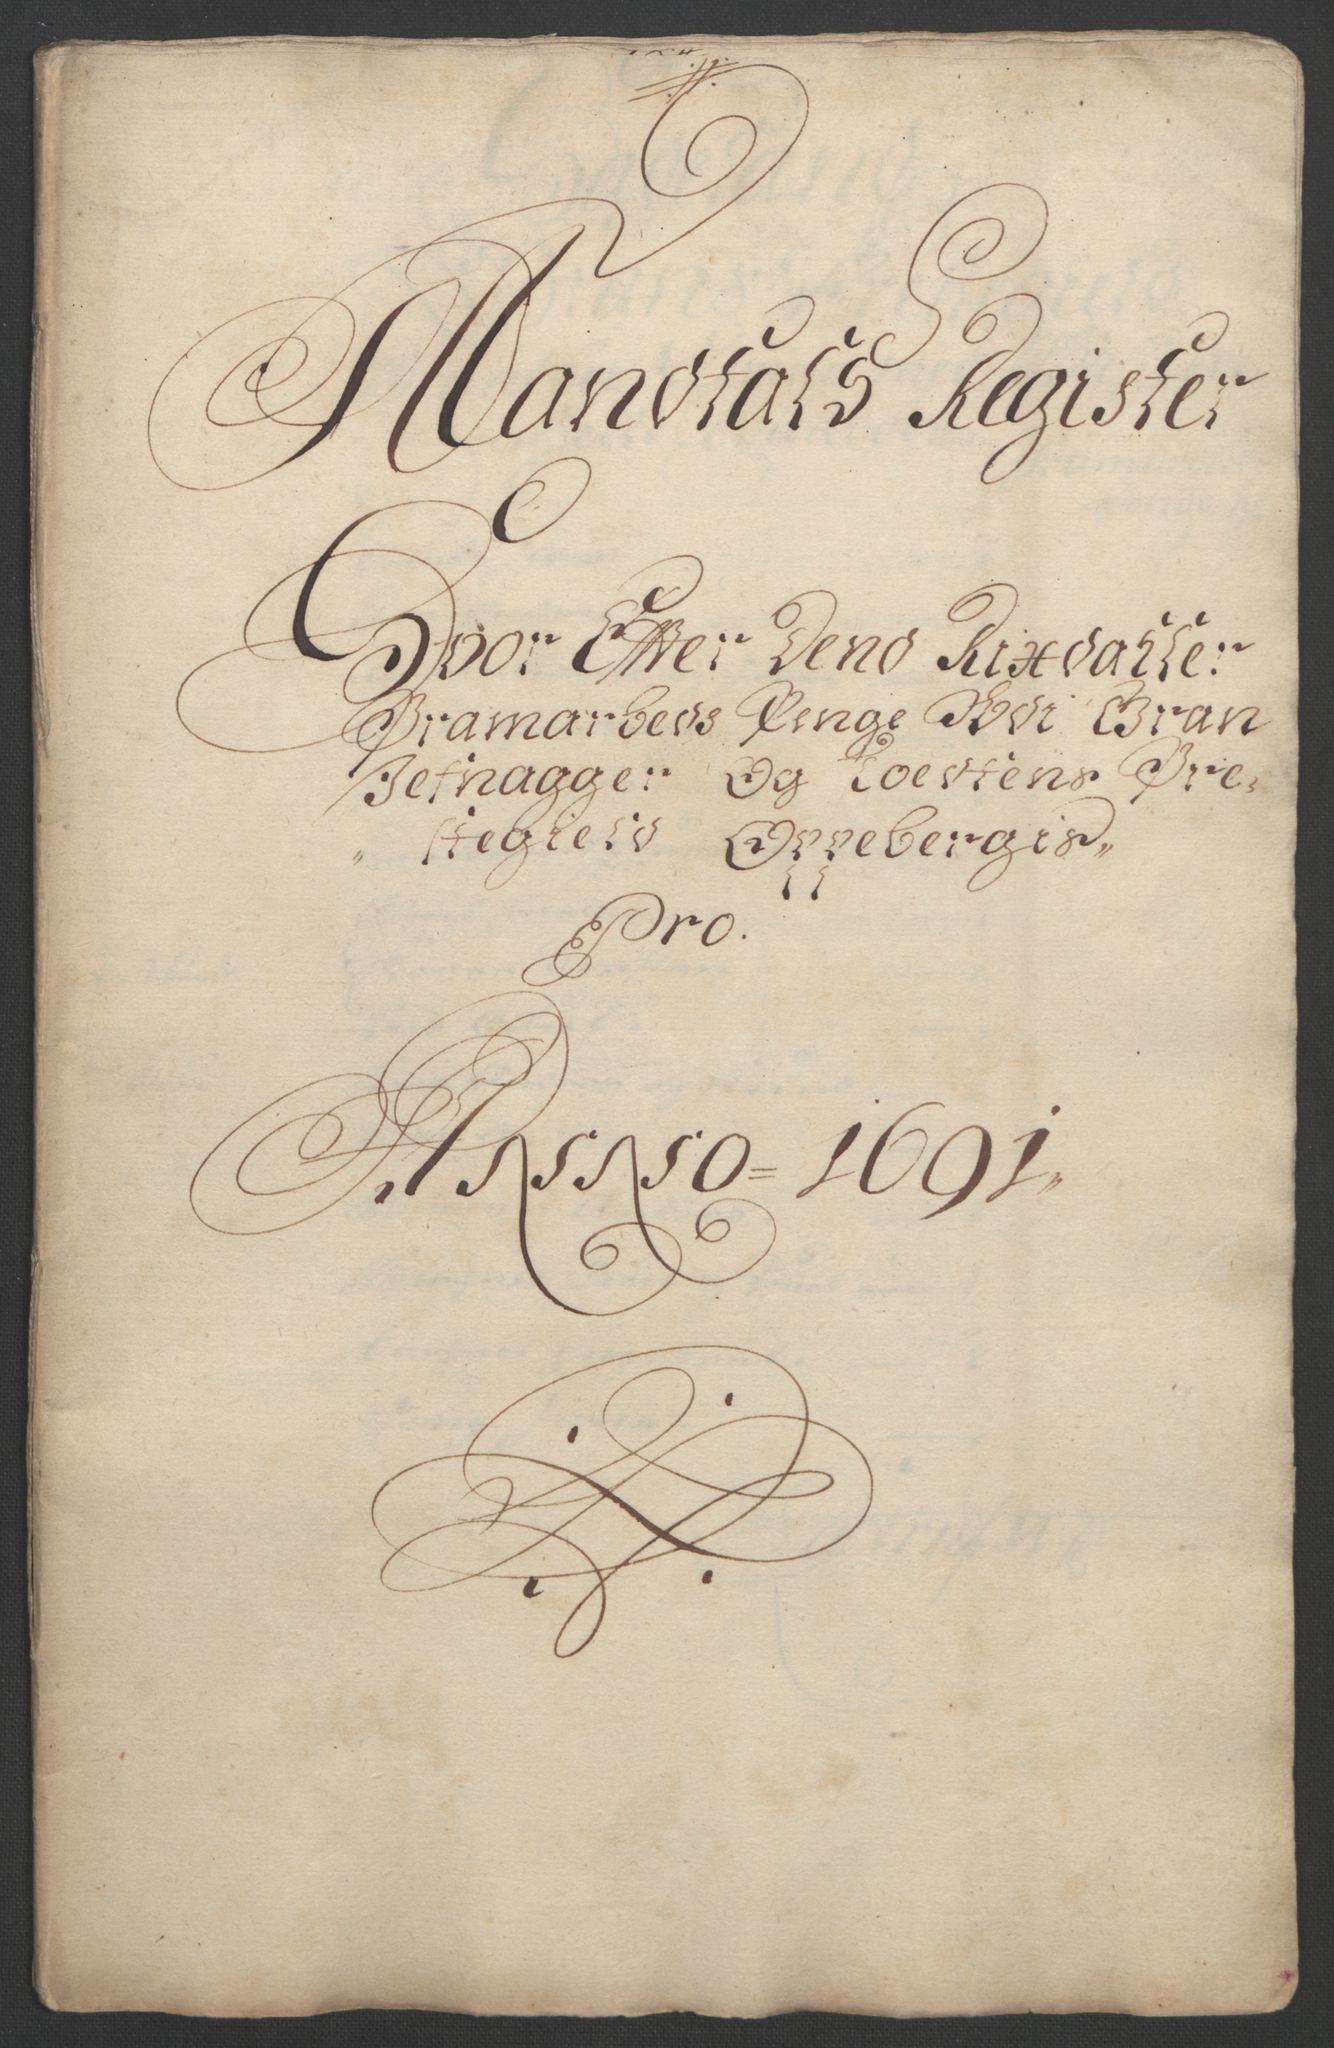 Mandtals Register
Hvor Efter dend Rixdaller
Pramarbeds Penge Udi Gran
Jefnagger Og Toestens Pre„
„ stegield Oppebergis„
Pro.
Anno= 1691„